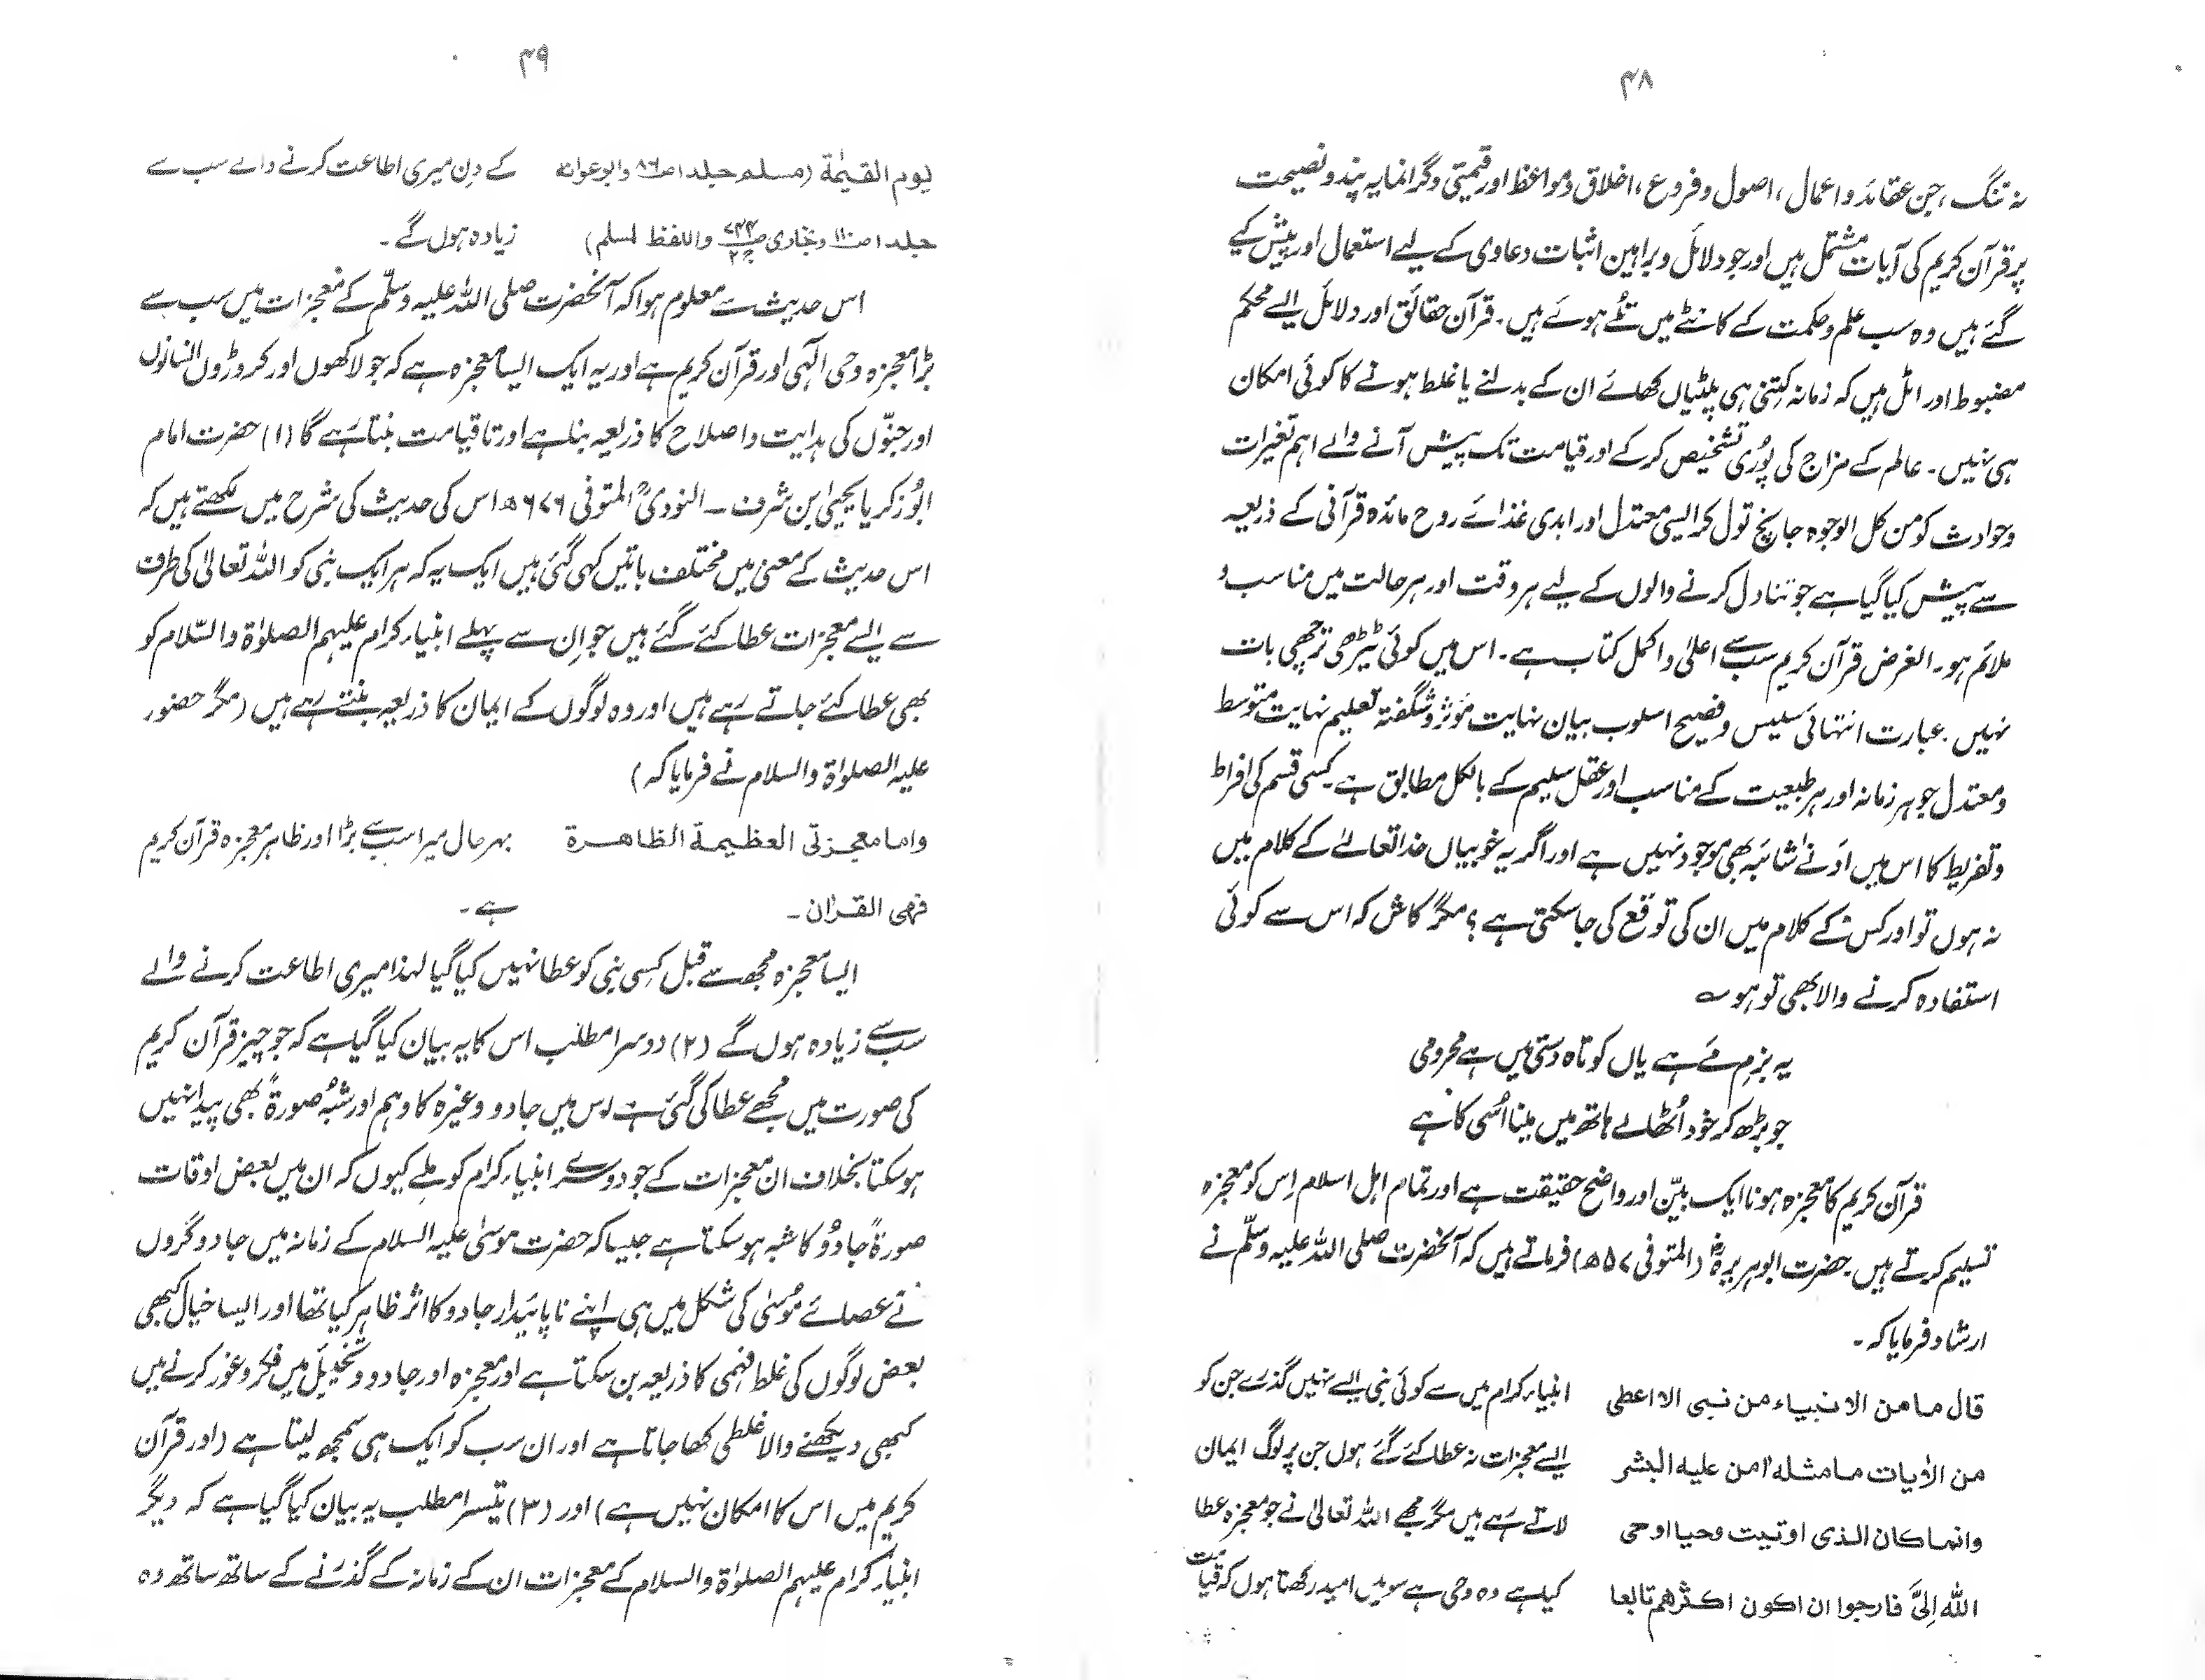 ۴۸
نہ تنگ، جن عقائد و اعمال، اصول و فروع، اخلاق و مواعظ اور قیمتی و گرانمایہ پند و نصیحت
پر قرآن کریم کی آیات مشتمل ہیں اور جو دلائل و براہین اثبات دعاوی کے لیے استعمال اور پیش کیے
گئے ہیں وہ سب علم و حکمت کے کانٹے میں تُلے ہوئے ہیں۔ قرآن حقائق اور دلائل ایسے محکم
مضبوط اور اٹل ہیں کہ زمانہ کتنی ہی پلٹیاں کھائے ان کے بدلنے یا غلط ہونے کا کوئی امکان
ہی نہیں۔ عالم کے مزاج کی پُوری تشخیص کر کے اور قیامت تک پیش آنے والے اہم تغیرات
و حوادث کو من کل الوجوہ جانچ تول کر ایسی معتدل اور ابدی غذائے روح مائدہ قرآنی کے ذریعہ
سے پیش کیا گیا ہے جو تناول کرنے والوں کے لیے ہر وقت اور ہر حالت میں مناسب و
ملائم ہو۔ الغرض قرآن کریم سب سے اعلیٰ و اکمل کتاب ہے۔ اس میں کوئی ٹیڑھی ترچھی بات
نہیں۔ عبارت انتہائی سلیس و فصیح اسلوب بیان نہایت مؤثر و شگفتہ تعلیم نہایت متوسط
و معتدل جو ہر زمانہ اور ہر طبیعت کے مناسب اور عقل سلیم کے بالکل مطابق ہے۔ کسی قسم کی افراط
و تفریط کا اس میں ادنےٰ شائبہ بھی موجود نہیں ہے اور اگر یہ خوبیاں خدا تعالےٰ کے کلام میں
نہ ہوں تو اور کس کے کلام میں ان کی توقع کی جا سکتی ہے؟ مگر کاش کہ اس سے کوئی
استفادہ کرنے والا بھی تو ہو ؎
یہ بزمِ مے ہے یاں کوتاہ دستی میں ہے محرومی
جو بڑھ کر خود اُٹھا لے ہاتھ میں مینا اُسی کا ہے
قرآن کریم کا معجزہ ہونا ایک بیّن اور واضح حقیقت ہے اور تمام اہل اسلام اِس کو معجزہ
تسلیم کرتے ہیں۔ حضرت ابوہریرہؓ (المتوفی ۵۷ھ) فرماتے ہیں کہ آنحضرت صلی اللہ علیہ وسلّم نے
ارشاد فرمایا کہ۔
قال ما من الانبیاء من نبی الا اعطی انبیاء کرام میں سے کوئی نبی ایسے نہیں گذرے جن کو
من الاٰیات ما مثلہ اٰمن علیہ البشر ایسے معجزات نہ عطا کئے گئے ہوں جن پر لوگ ایمان
وانما کان الذی اوتیت وحیا اوحی لاتے رہے ہیں مگر مجھے اللہ تعالیٰ نے جو معجزہ عطا
اللہ اِلیَّ فارجوا ان اکون اکثرھم تابعا کیا ہے وہ وحی ہے سو میں امید رکھتا ہوں کہ قیامت
۴۹
یوم القیٰمۃ (مسلم جلد ۱ ص ۸۶ وابوعوانہ کے دِن میری اطاعت کرنے والے سب سے
جلد ۱ ص ۱۱۰ و بخاری ص ۷۴۴ ج ۲ واللفظ لمسلم) زیادہ ہوں گے۔
اس حدیث سے معلوم ہوا کہ آنحضرت صلی اللہ علیہ وسلّم کے معجزات میں سب سے
بڑا معجزہ وحی الٰہی اور قرآن کریم ہے اور یہ ایک ایسا معجزہ ہے کہ جو لاکھوں اور کروڑوں انسانوں
اور جنّوں کی ہدایت و اصلاح کا ذریعہ بنا ہے اور تا قیامت بنتا رہے گا (۱) حضرت امام
ابُو زکریا یحییٰ بن شرف ۔ النووی المتوفی ۶۷۶ھ اس کی حدیث کی شرح میں لکھتے ہیں کہ
اس حدیث کے معنیٰ میں مختلف باتیں کہی گئی ہیں ایک یہ کہ ہر ایک نبی کو اللہ تعالیٰ کی طرف
سے ایسے معجزات عطا کئے گئے ہیں جو اِن سے پہلے انبیاء کرام علیہم الصلوٰۃ والسّلام کو
بھی عطا کئے جاتے رہے ہیں اور وہ لوگوں کے ایمان کا ذریعہ بنتے رہے ہیں (مگر حضور
علیہ الصلوٰۃ والسلام نے فرمایا کہ)
واما معجزتی العظیمۃ الظاھرۃ بہرحال میرا سب سے بڑا اور ظاہر معجزہ قرآن کریم
فھی القران۔ ہے۔
ایسا معجزہ مجھ سے قبل کِسی نبی کو عطا نہیں کیا گیا لہٰذا میری اطاعت کرنے والے
سب سے زیادہ ہوں گے (۲) دوسرا مطلب اس کا یہ بیان کیا گیا ہے کہ جو چیز قرآن کریم
کی صورت میں مجھے عطا کی گئی ہے اس میں جادو وغیرہ کا وہم اور شبُہ صورۃً بھی پیدا نہیں
ہو سکتا بخلاف ان معجزات کے جو دوسرے انبیاء کرام کو ملے کیوں کہ ان میں بعض اوقات
صورۃً جادُو کا شبہ ہو سکتا ہے جیسا کہ حضرت موسیٰ علیہ السلام کے زمانہ میں جادوگروں
نے عصائے مُوسیٰ کی شکل میں ہی اپنے ناپائیدار جادو کا اثر ظاہر کیا تھا اور ایسا خیال کبھی
بعض لوگوں کی غلط فہمی کا ذریعہ بن سکتا ہے اور معجزہ اور جادو و تخییل میں فکر و غور کرنے میں
کبھی دیکھنے والا غلطی کھا جاتا ہے اور ان سب کو ایک ہی سمجھ لیتا ہے (اور قرآن
کریم میں اس کا امکان نہیں ہے) اور (۳) تیسرا مطلب یہ بیان کیا گیا ہے کہ دیگر
انبیاء کرام علیہم الصلوٰۃ والسلام کے معجزات ان کے زمانہ کے گذرنے کے ساتھ ساتھ وہ